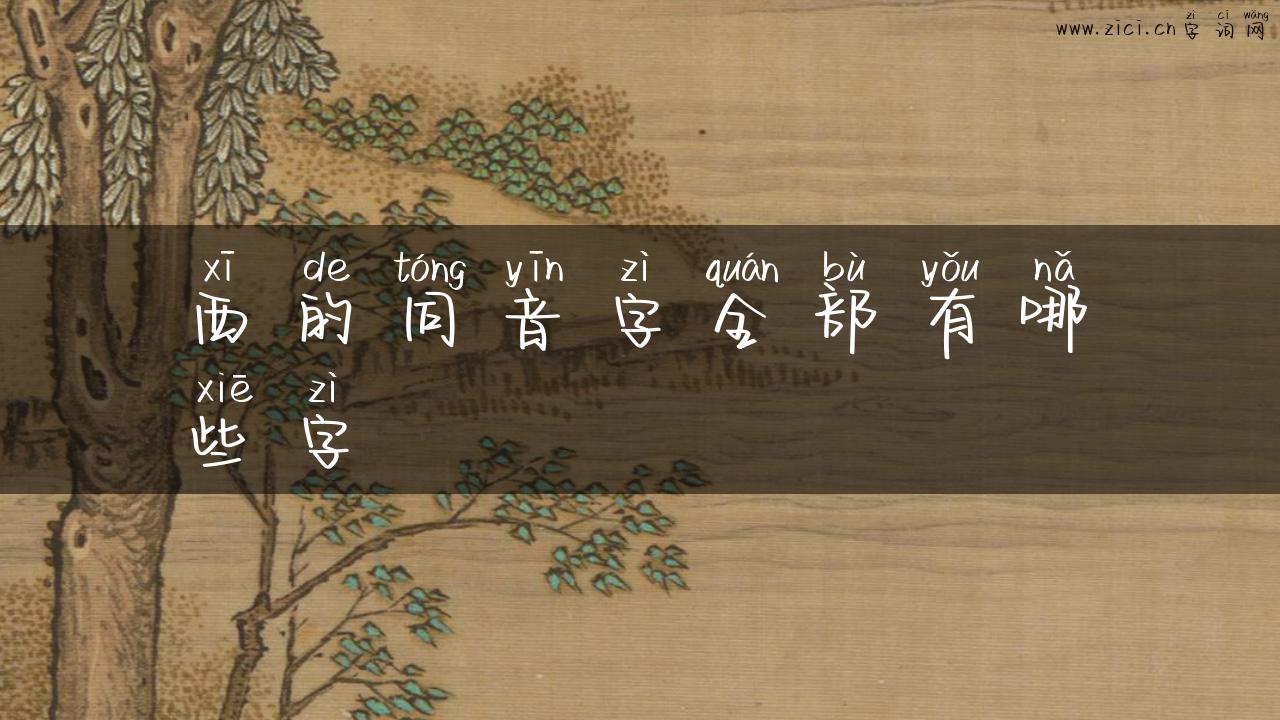 zì cí wǎng
www.zici.cn字词网
xī de tóng yīn zì quán bù yǒu nǎ
西的同音字全部有哪
xiē zì
些字